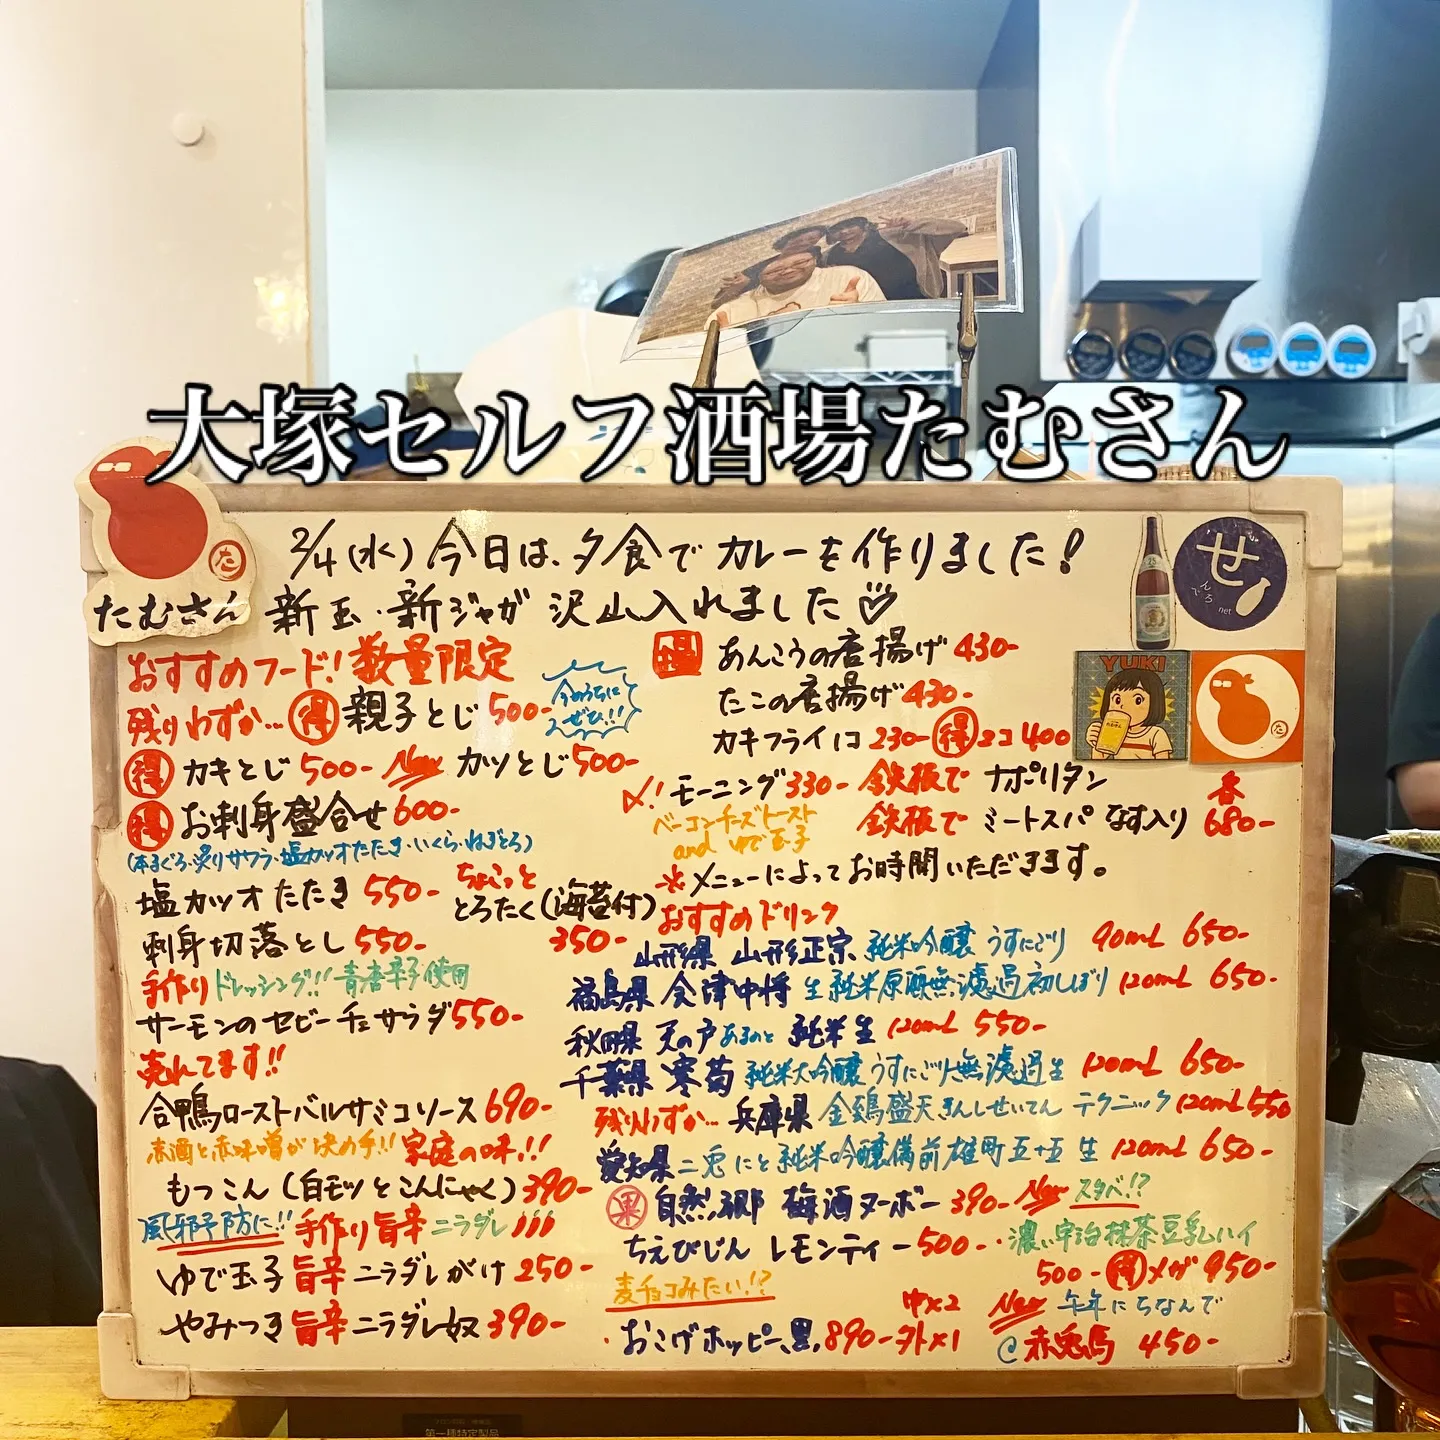 大塚セルフ酒場たむさん
2/4(水) 今日は、夕食でカレーを作りました!
たむさん
新玉・新ジャガ 沢山入れました♡
せ
んべろ
net
YUKI
おすすめフード!数量限定
残りわずか… 得 親子とじ 500-
今のうちに
ぜひ!!
得 カキとじ 500- New カツとじ 500-
得 お刺身盛合せ 600-
(本まぐろ・炙りサワラ・塩カツオたたき・いくら・ねぎとろ)
塩カツオたたき 550-
ちょこっと
とろたく(海苔付)
350-
刺身切落とし 550-
手作りドレッシング!!青唐辛子使用
サーモンのセビーチェサラダ 550-
売れてます!!
合鴨ローストバルサミコソース 690-
赤酒と赤味噌が決め手!! 家庭の味!!
もつこん(白モツとこんにゃく) 390-
風邪予防に!! 手作り旨辛ニラダレ
ゆで玉子 旨辛ニラダレがけ 250-
やみつき旨辛ニラダレ奴 390-
得 あんこうの唐揚げ 430-
たこの唐揚げ 430-
カキフライ1コ 230- 得 2コ 400
〆! モーニング 330-
ベーコンチーズトースト
and ゆで玉子
鉄板で ナポリタン
鉄板で ミートスパ なす入り 各 680-
※メニューによってお時間いただきます。
おすすめドリンク
山形県 山形正宗 純米吟醸 うすにごり 90mL 650-
福島県 会津中将 生純米原酒無濾過初しぼり 120mL 650-
秋田県 天の戸 純米生 120mL 550-
千葉県 寒菊 純米大吟醸うすにごり無濾過生 120mL 650-
残りわずか… 兵庫県 金鵄盛天きんしせいてん テクニック 120mL 550
愛知県 二兎 にと 純米吟醸備前雄町五十五 生 120mL 650-
果 自然郷 梅酒ヌーボー 390- New スタバ!?
ちえびじん レモンティー 500-
・濃い宇治抹茶豆乳ハイ
500- 得 メガ 950-
麦チョコみたい!?
・おこげホッピー、黒。890- 中×2 外×1
New 午年にちなんで
赤兎馬 450-
第一種特定製品